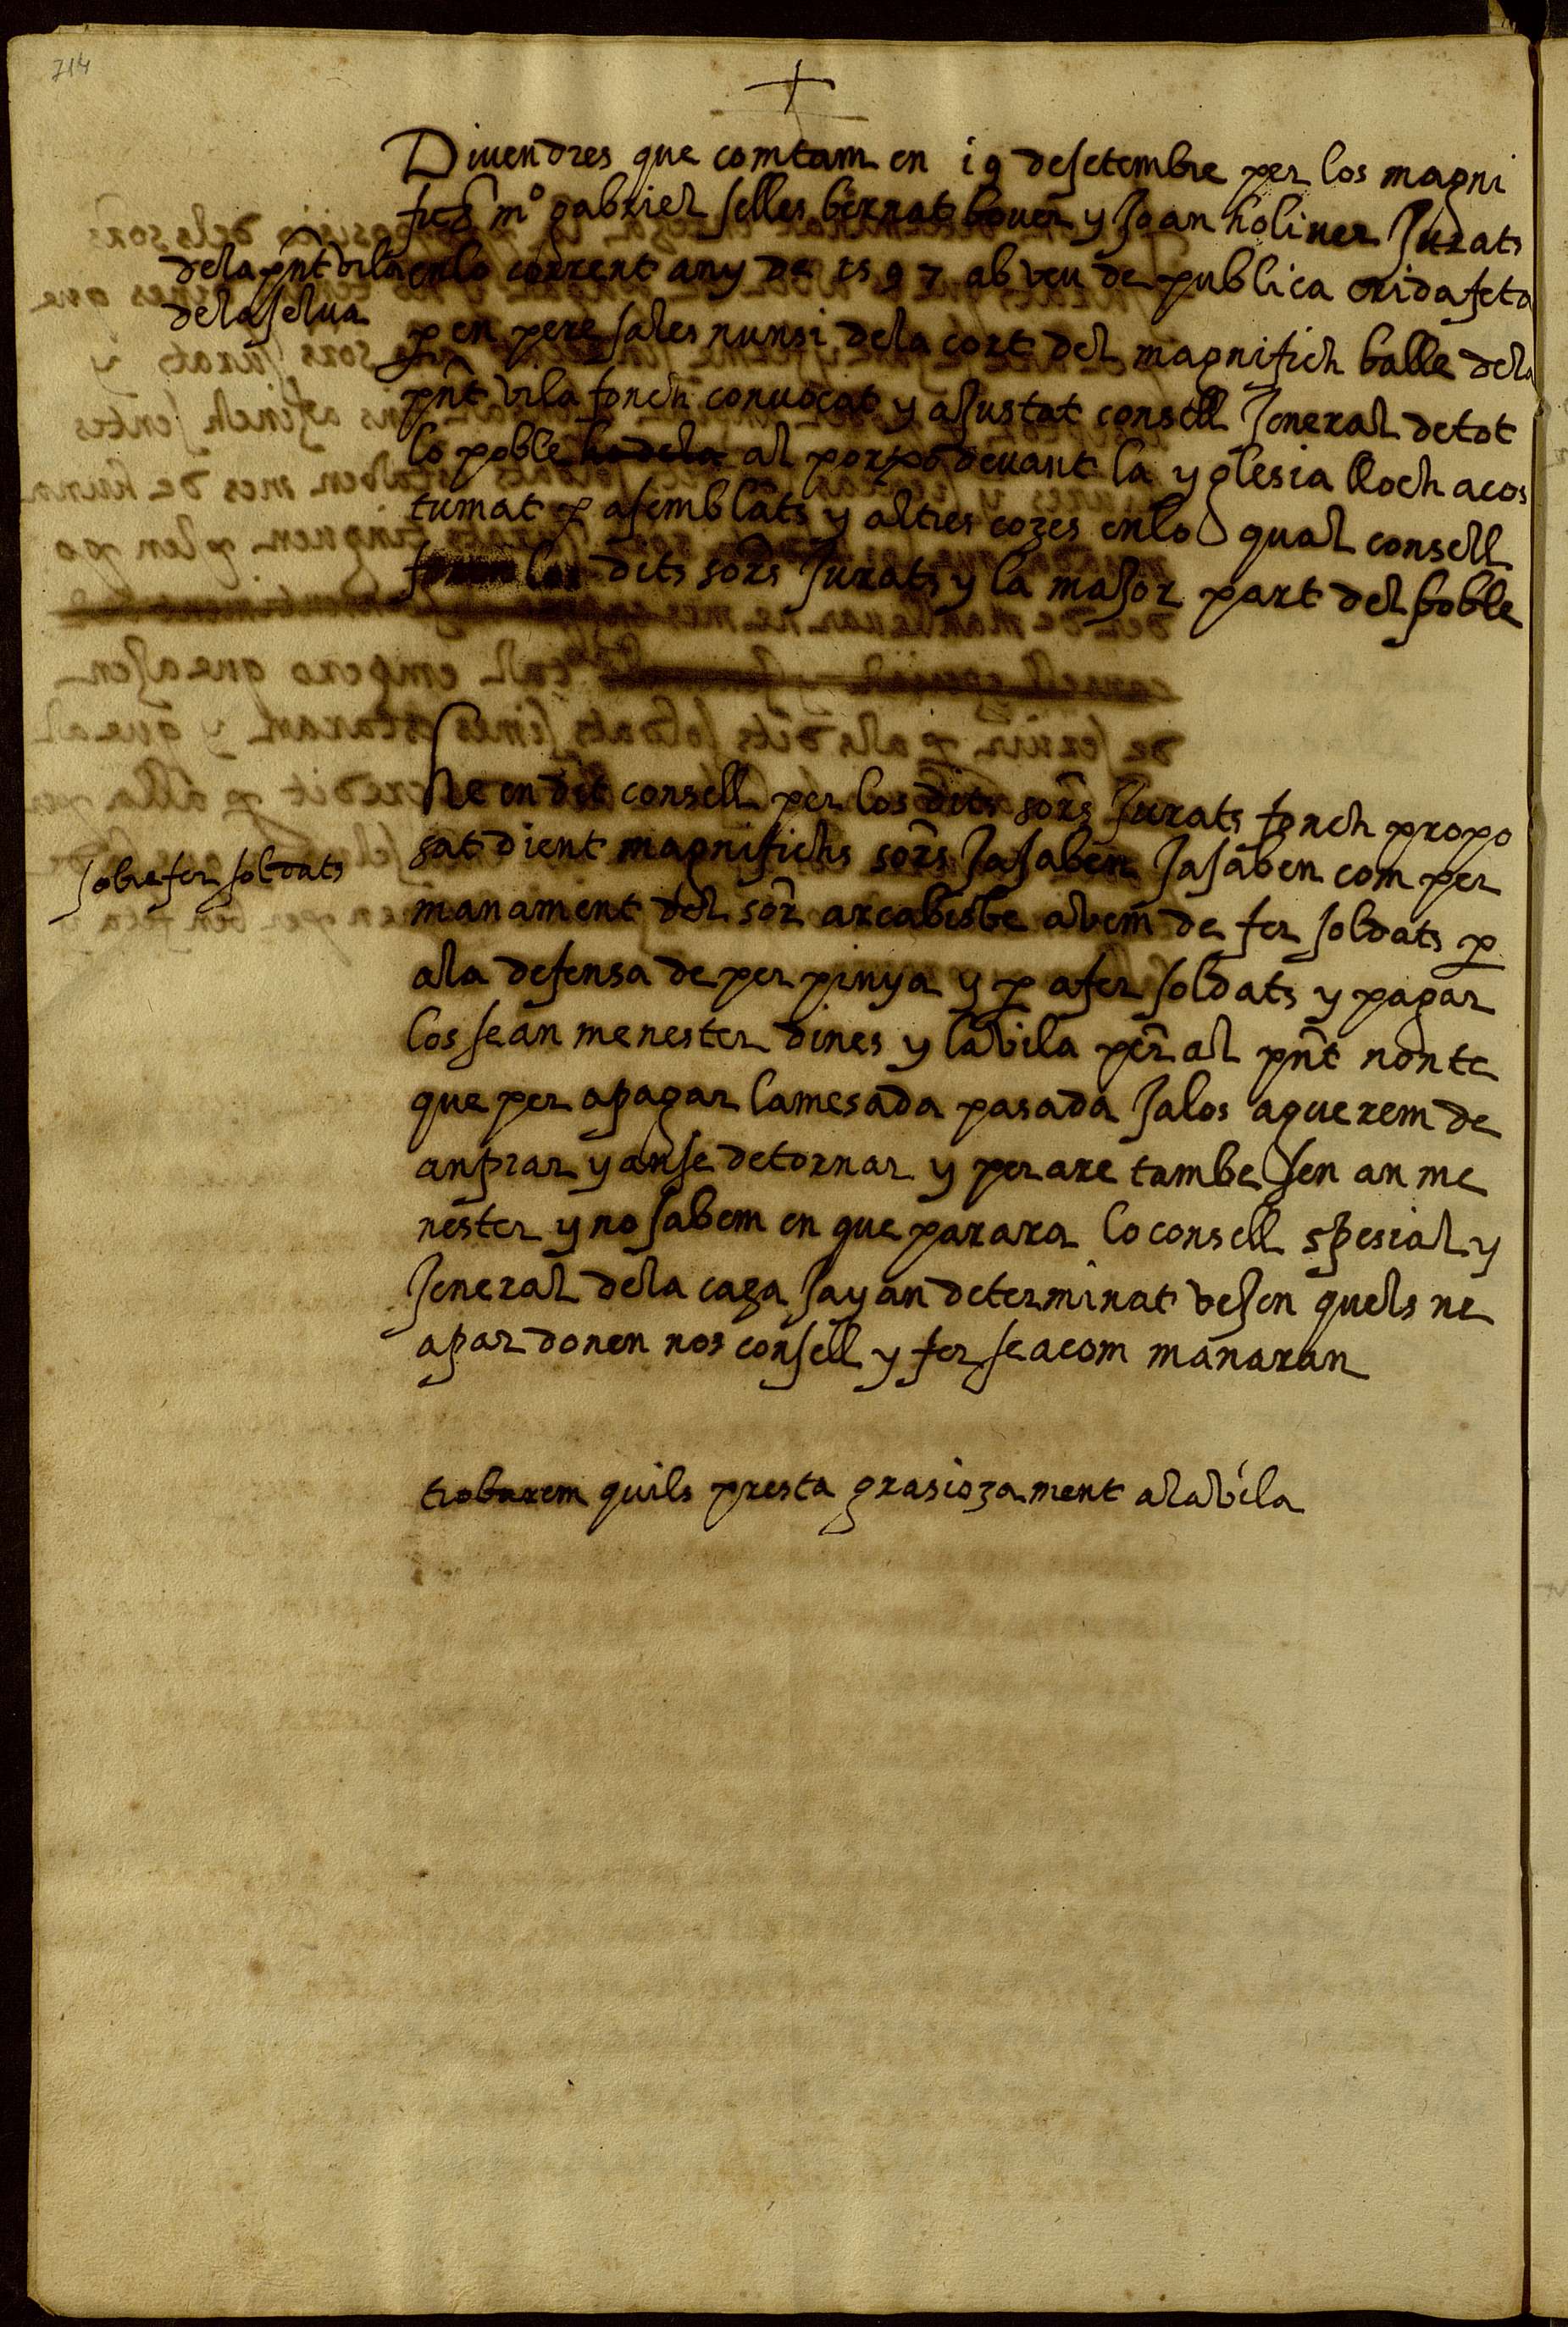 714
Divendres que comtam en i9 desetembre per los magni
fichs mº gabriel selles bernat bover y Joan holiver Jurats
dela pñt vila enlo corrent any de 1597 ab veu de publica crida feta
delaselva
p en pere sales nunsi dela cort del magnifich balle dela
pñt vila fonch convocat y aJustat consell Jeneral detot
lo poble al porxo devant la yglesia lloch acos
tumat p asemblats y altres cozes enlo qual consell
foren los dits sors Jurats y la maJor part del poble
Ne en dit consell per los dits sors Jurats fonch propo
sobre fer soldats
sat dient magnifichs sors Jasaben Jasaben com per
manament del sor arcabisbe avem de fer soldats p
ala defensa de perpinya y p afer soldats y pagar
los sean menester dines y lavila per al pñt nonte
que per apagar lamesada pasada Jalos aguerem de
anprar yanse detornar y per are tambe sen an me
nester y no sabem en que parara lo consell spesial y
Jeneral dela caza Jayan determinat veJen quels ne
apar donen nos consell y fer se acom manaran
trobarem quils presta grasiozament alavila